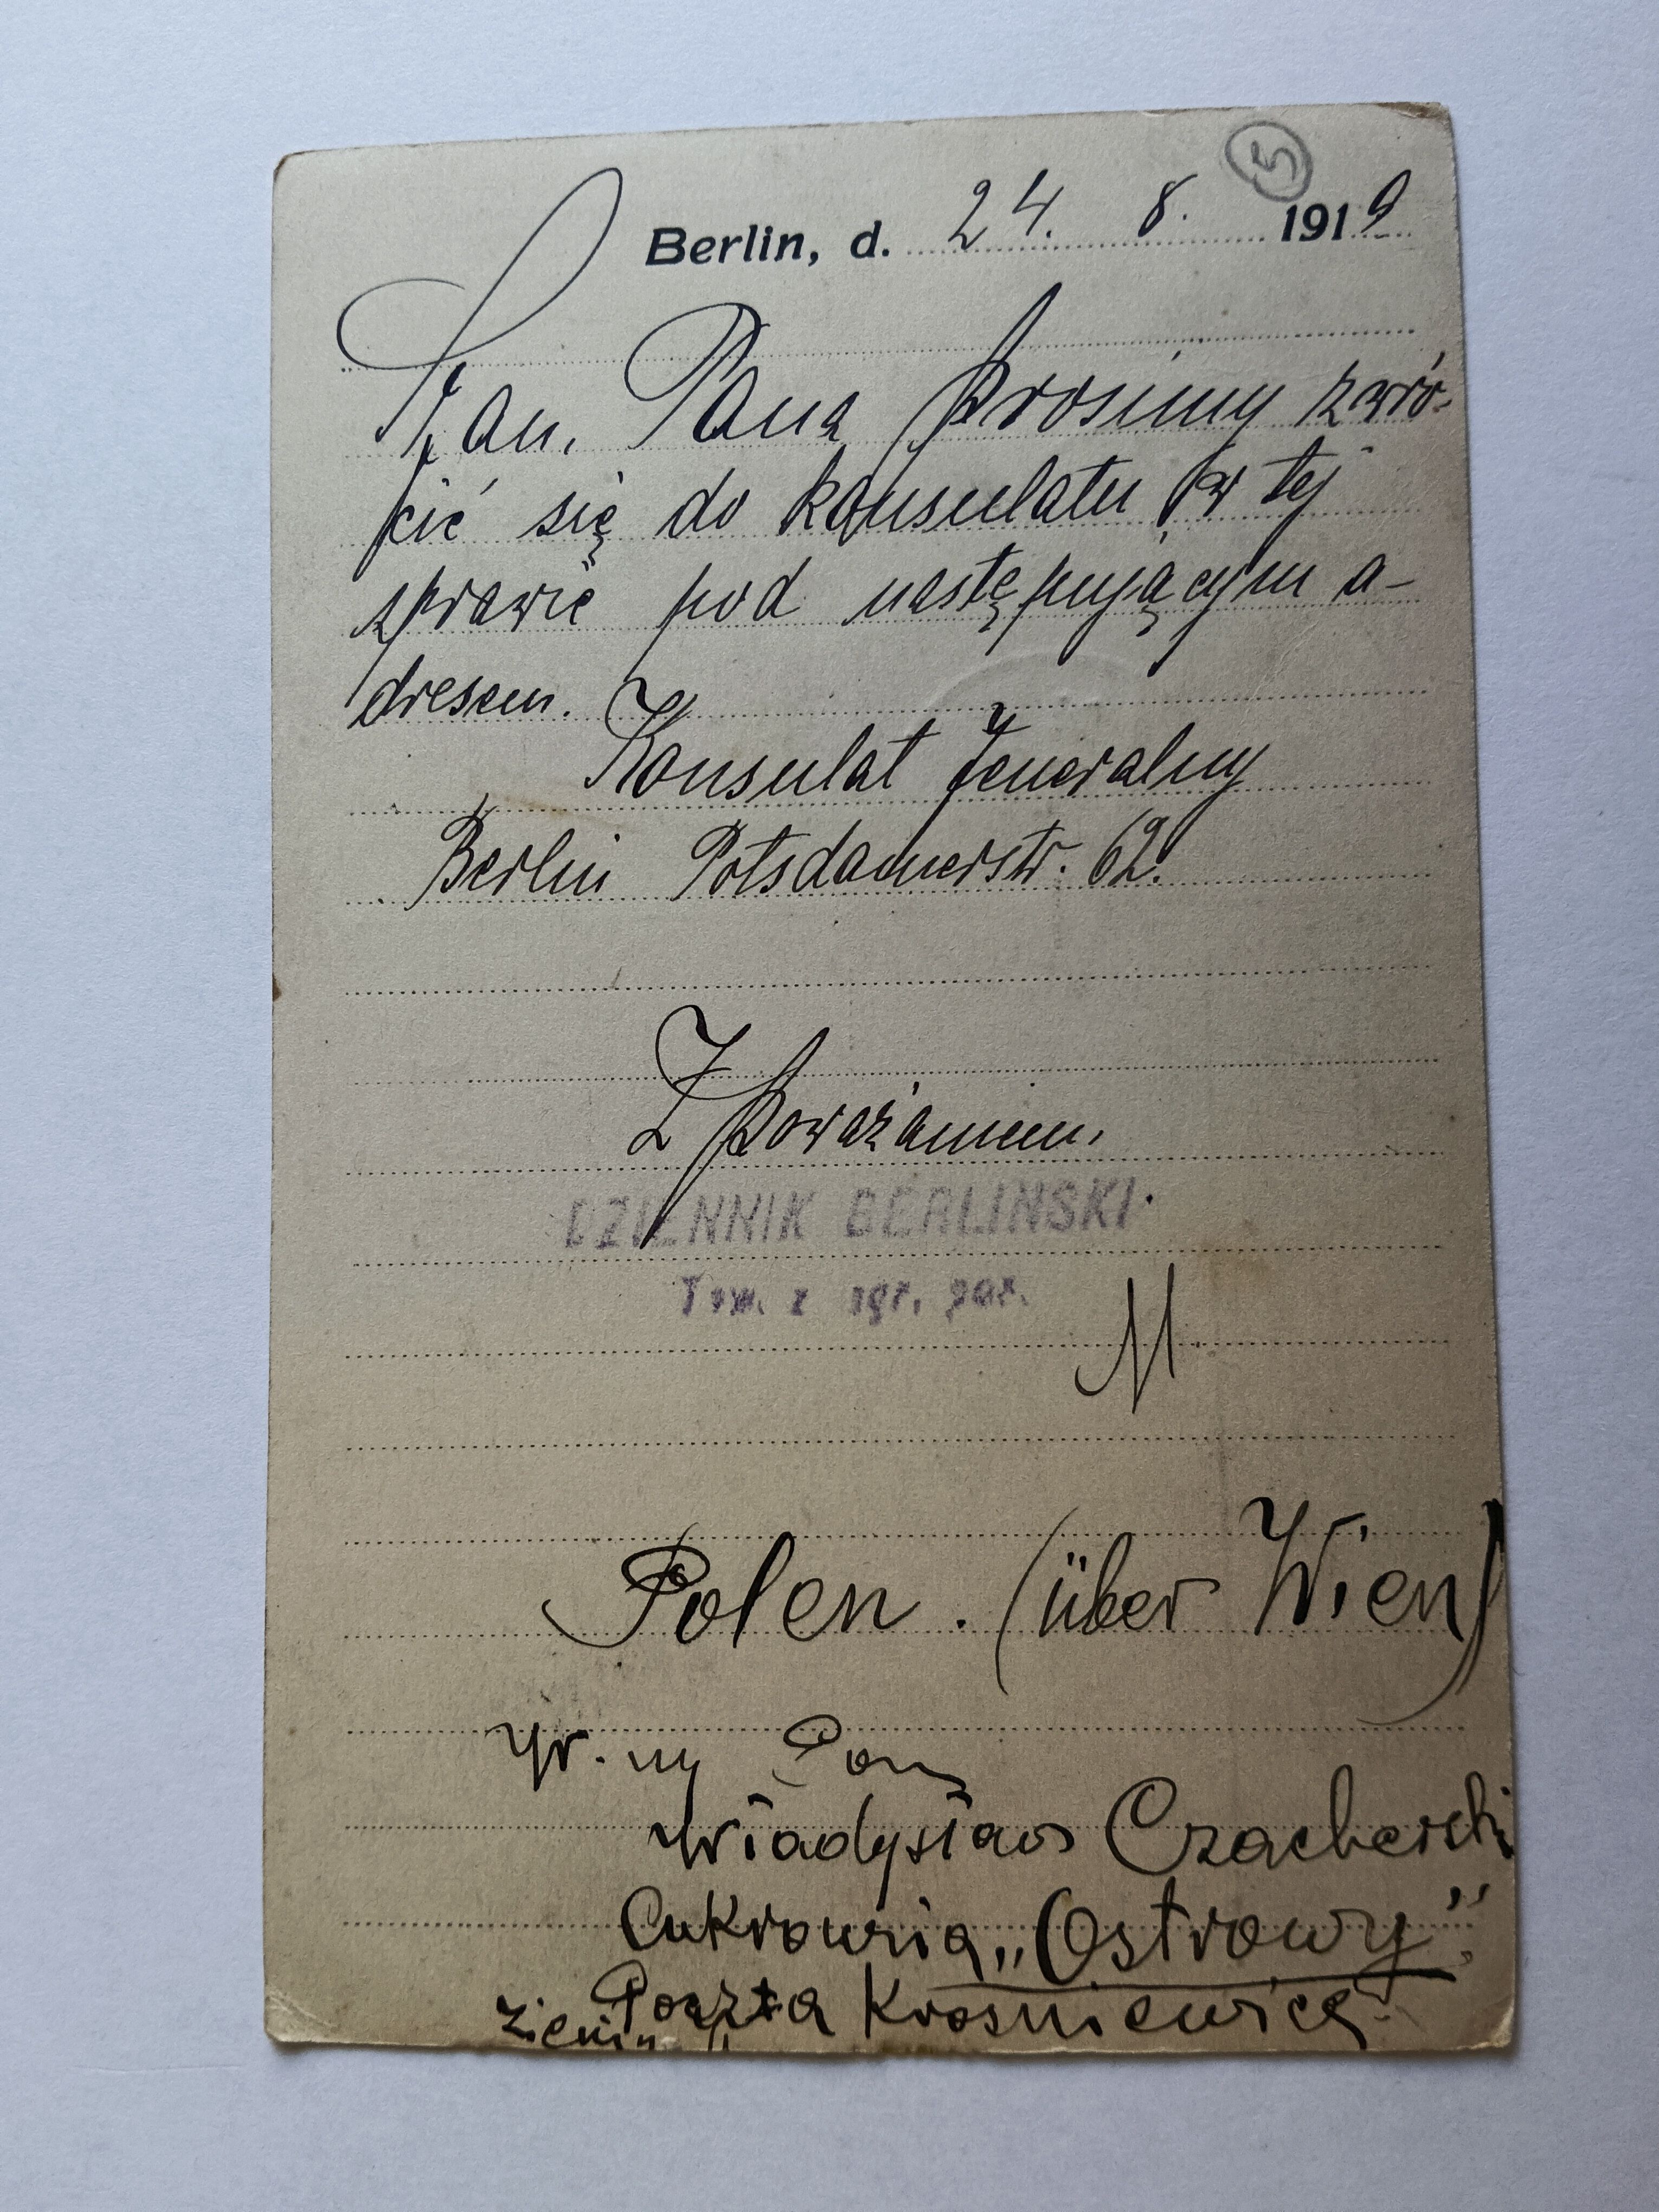 5
Berlin, d. 24. 8. 1919
Szan. Pana prosimy zwró-
cić się do konsulatu w tej
sprawie pod następującym a-
dresem.
Konsulat Jeneralny
Berlin Potsdamerstr. 62.
Z poważaniem.
DZIENNIK BERLIŃSKI
Tow. z ogr. por.
M
Polen. (über Wien)
W. ny Pan
Władysław Czacherski
Cukrownia „Ostrowy”
Poczta Krośniewice